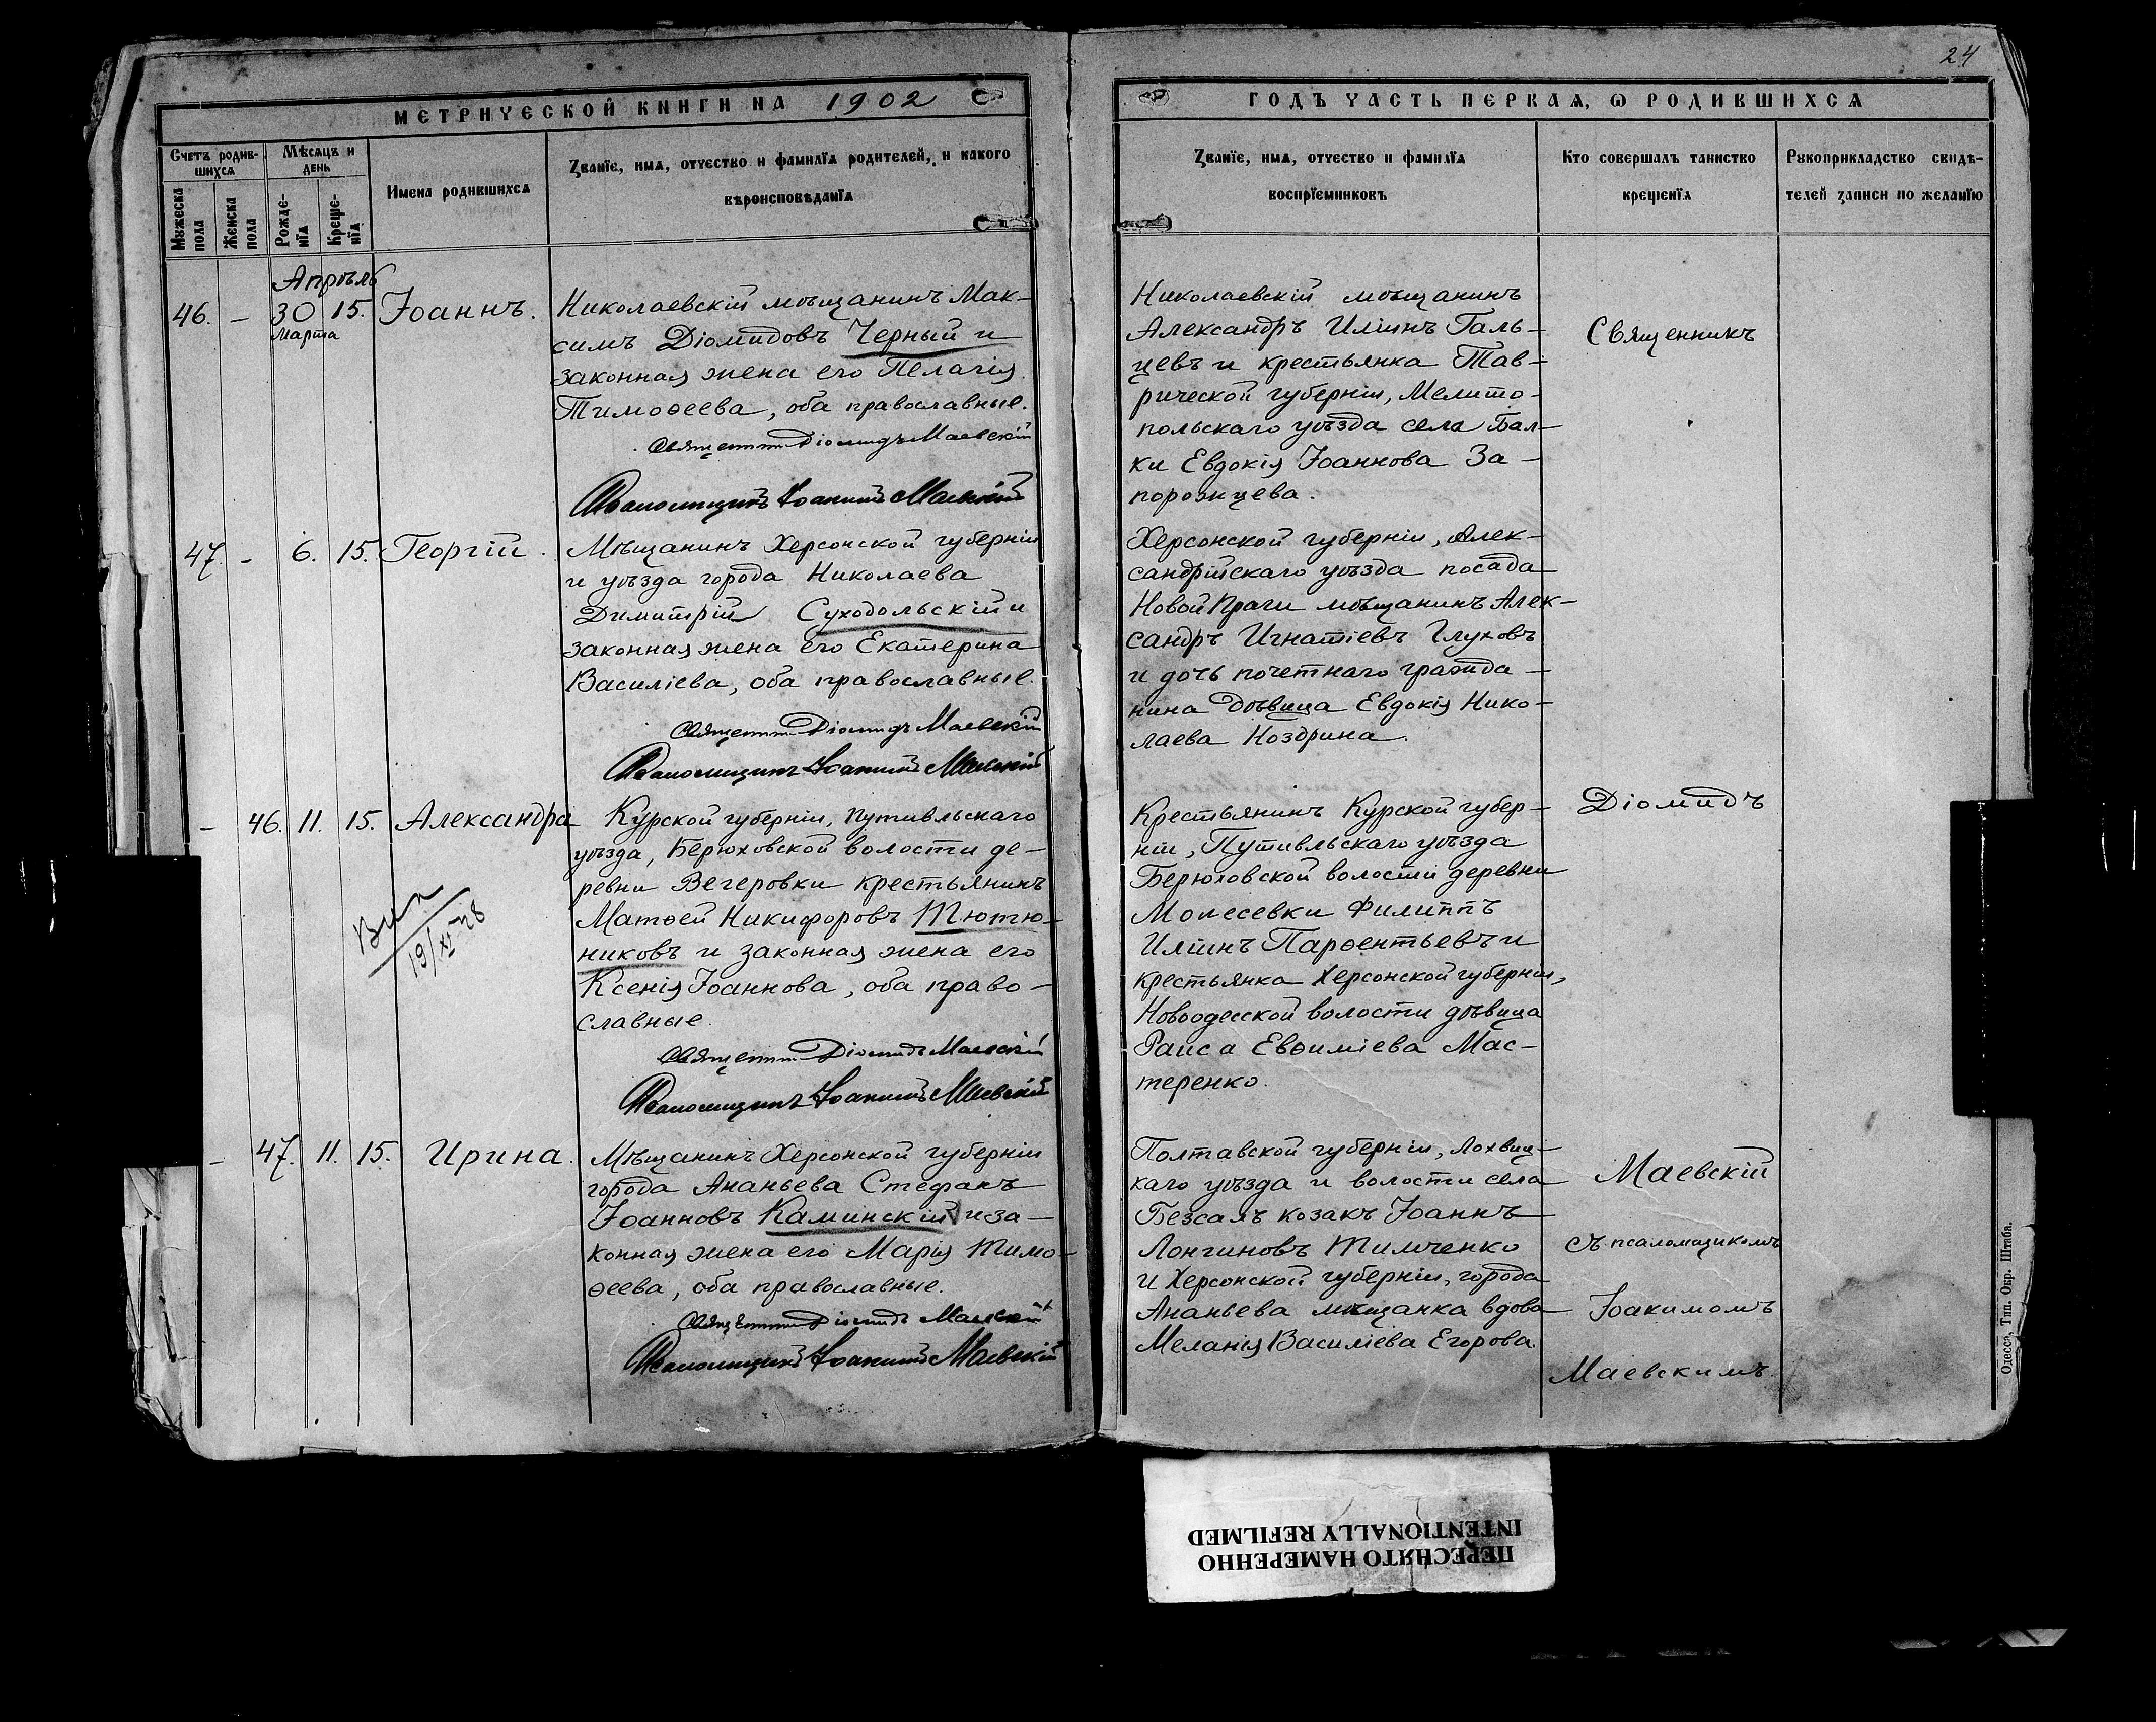 24
МЕТРИЧЕСКОЙ КНИГИ НА 1902
ГОДЪ ЧАСТЬ ПЕРВАЯ, Ѡ РОДИВШИХСЯ
Счетъ родив-
шихся
Мѣсяцъ и
день
Мужеска
пола
Женска
пола
Рожде-
нїя
Креще-
нїя
Имена родившихся
Званїе, имя, отчество и фамилїя родителей, и какого
вѣроисповѣданїя
Званїе, имя, отчество и фамилїя
воспрїемниковъ
Кто совершалъ таинство
крещенїя
Рукоприкладство свидѣ-
телей записи по желанїю
Апрѣль
46. – 30 15. Іоаннъ.
Марта
Николаевскій мѣщанинъ Мак-
симъ Діомидовъ Черный и
законная жена его Пелагія
Тимоѳеева, оба православные.
Священник Діомидъ Маевскій
Псаломщикъ Іоакимъ Маевскій
Николаевскій мѣщанинъ
Александръ Иліинъ Галь-
цевъ и крестьянка Тав-
рической губерніи, Мелито-
польскаго уѣзда села Бал-
ки Евдокія Іоаннова За-
порожцева.
47. – 6. 15. Георгій.
Мѣщанинъ Херсонской губерніи
и уѣзда города Николаева
Димитрій Суходольскій и
законная жена его Екатерина
Василіева, оба православные.
Священник Діомидъ Маевскій
Псаломщикъ Іоакимъ Маевскій
Херсонской губерніи, Алек-
сандрійскаго уѣзда посада
Новой Праги мѣщанинъ Алек-
сандръ Игнатіевъ Глуховъ
и дочь почетнаго гражда-
нина дѣвица Евдокія Нико-
лаева Ноздрина.
– 46. 11. 15. Александра
19/XI-28
Курской губерніи, Путивльскаго
уѣзда, Берюховской волости де-
ревни Вегеровки крестьянинъ
Матѳей Никифоровъ Тютю-
никовъ и законная жена его
Ксенія Іоаннова, оба право-
славные.
Священник Діомидъ Маевскій
Псаломщикъ Іоакимъ Маевскій
Крестьянинъ Курской губер-
ніи, Путивльскаго уѣзда
Берюховской волости деревни
Мопесевки Филиппъ
Иліинъ Парѳентьевъ и
крестьянка Херсонской губерніи,
Новоодесской волости дѣвица
Раиса Евѳиміева Мас-
теренко.
– 47. 11. 15. Ирина.
Мѣщанинъ Херсонской губерніи
города Ананьева Стефанъ
Іоанновъ Каминскій и за-
конная жена его Марія Тимо-
ѳеева, оба православные.
Священник Діомидъ Маевскій
Псаломщикъ Іоакимъ Маевскій
Полтавской губерніи, Лохвиц-
каго уѣзда и волости села
Безсалъ козакъ Іоаннъ
Лонгиновъ Тимченко
и Херсонской губерніи, города
Ананьева мѣщанка вдова
Меланія Василіева Егорова.
Священникъ
Діомидъ
Маевскій
съ псаломщикомъ
Іоакимомъ
Маевскимъ.
Одесса, Тип. Окр. Штаба.
ПЕРЕСНЯТО НАМЕРЕННО
INTENTIONALLY REFILMED